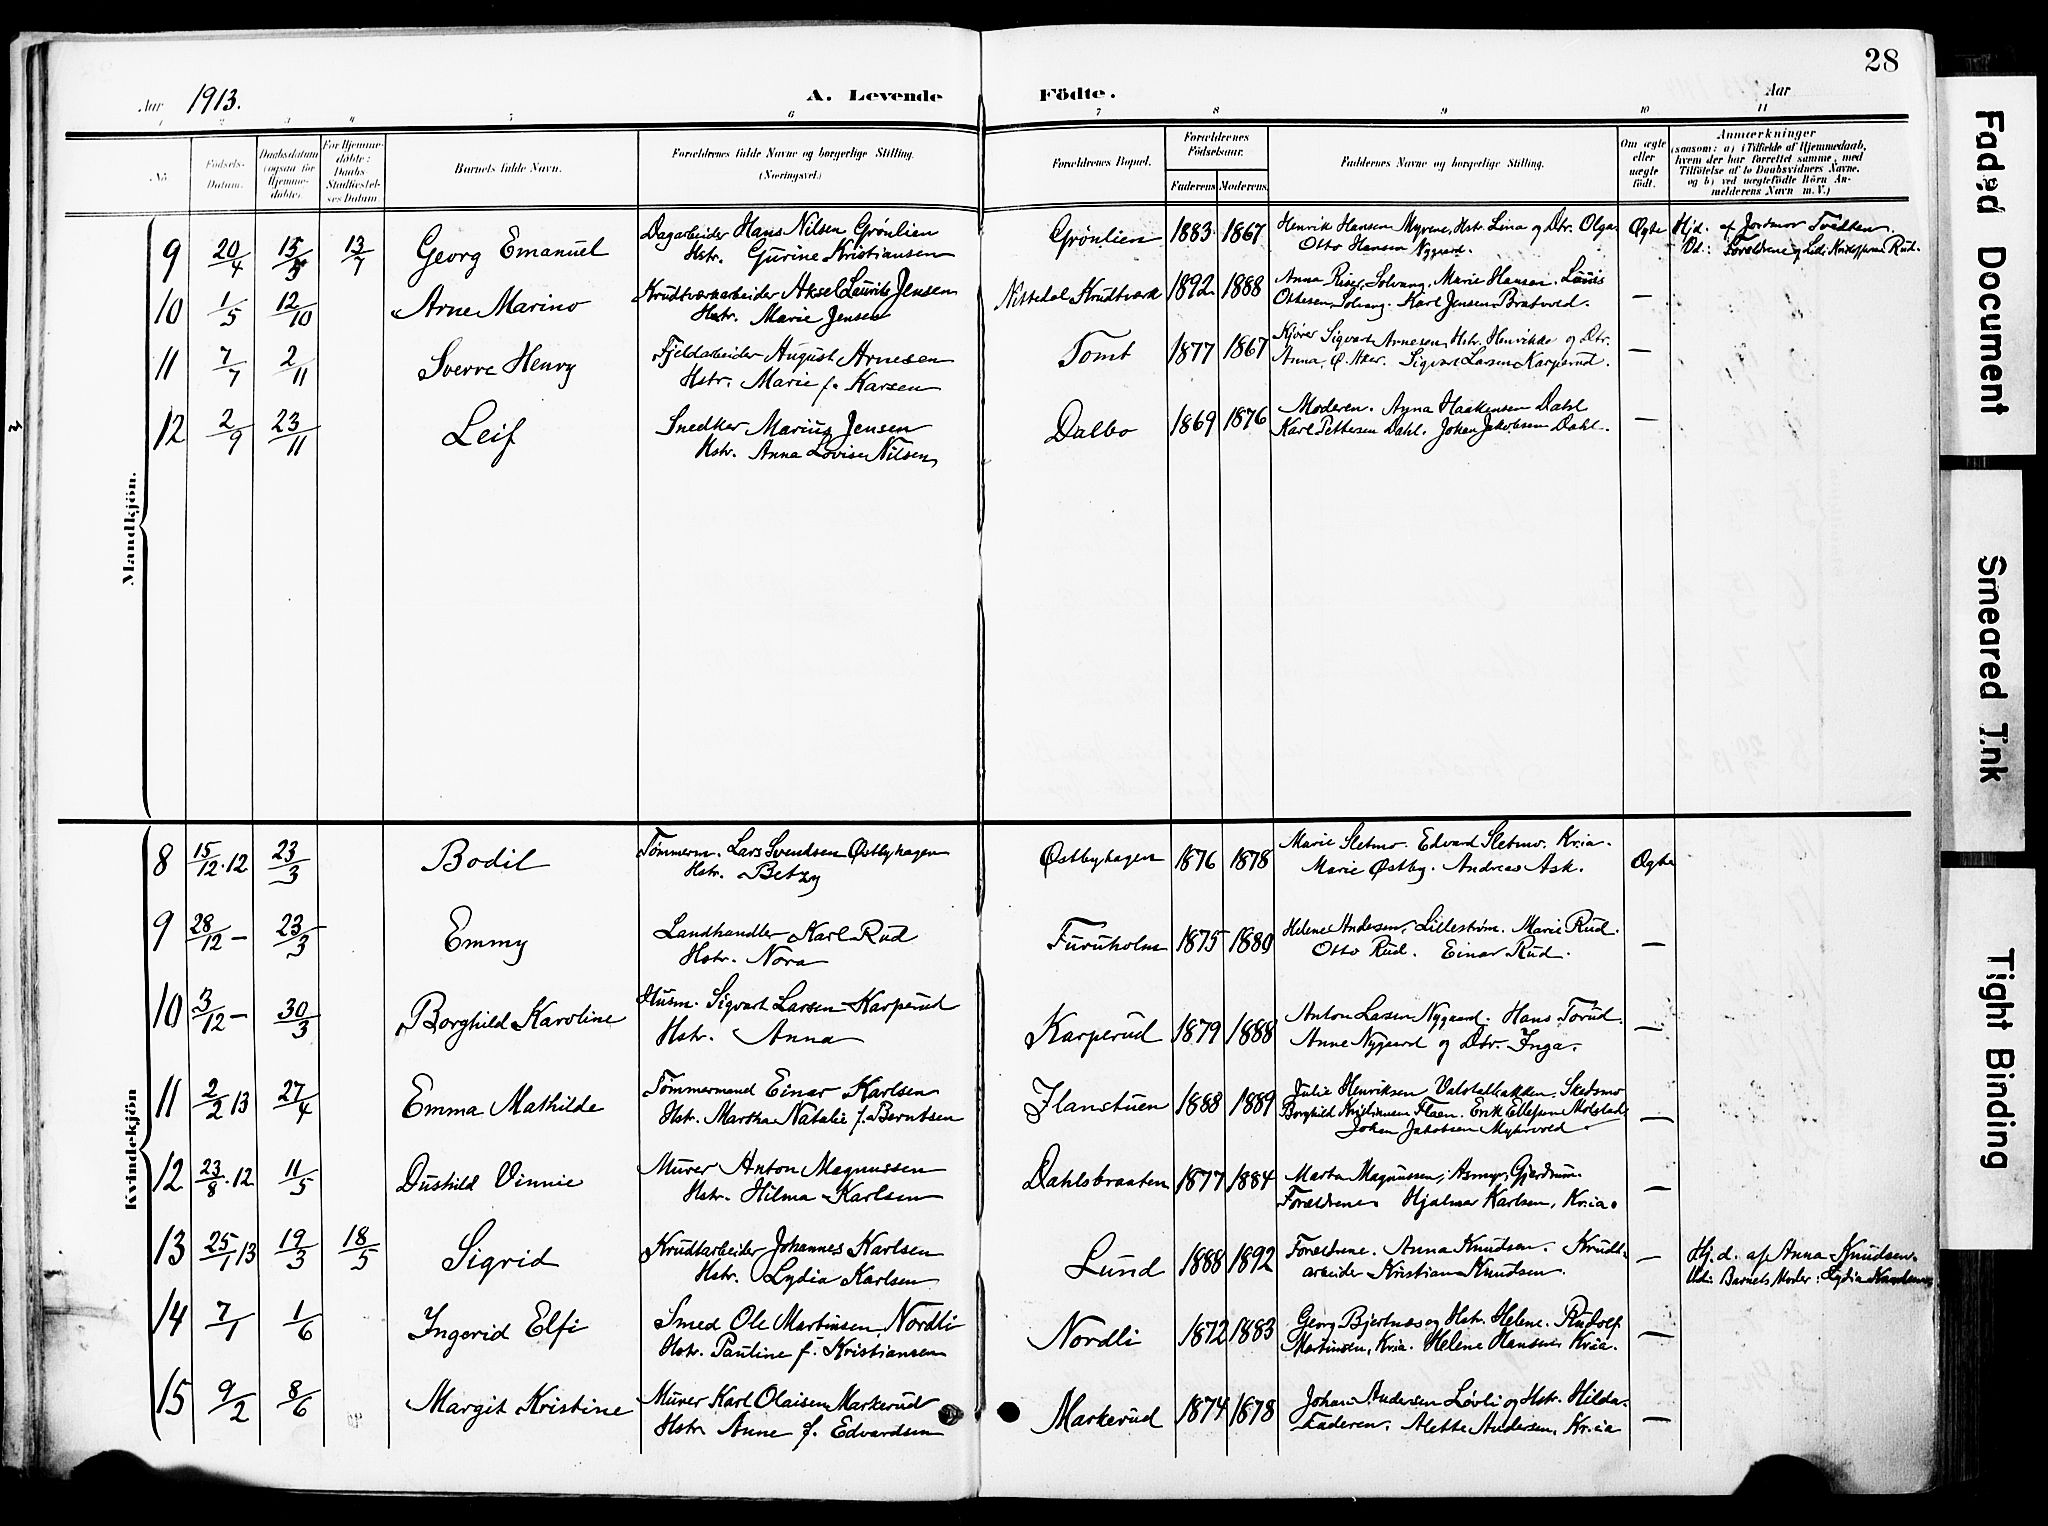 28
Aar 1913. A. Levende Födte. Aar
1 2 3 4 5 6 7 8 9 10 11
No. Fødsels-Datum. Daabsdatum (ogsaa for Hjemmedøbte). For Hjemmedøbte: Daabs Stadfæstelses Datum Barnets fulde Navn. Forældrenes fulde Navne og borgerlige Stilling. (Næringsvei.) Forældrenes Bopæl. Forældrenes Födselsaar. Faderens. Moderens. Faddernes Navne og borgerlige Stilling. Om ægte eller uægte født. Anmærkninger (saasom: a) i Tilfælde af Hjemmedaab, hvem der har forrettet samme, med Tilføielse af to Daabsvidners Navne, og b) ved uægtefödte Börn Anmelderens Navn m. V.)
Mandkjön.
9 20/4 15/5 13/7 Georg Emanuel Dagarbeider Hans Nilsen Grønlien Grønlien 1883 1867 Henrik Hansen Myrene, Hst. Lina og Dtr. Olga Ægte Hjd. af Jordmor Tvedten.
Hstr. Gurine Kristiansen Otto Hansen Nygaard. Vd: Forældrene og Rud.
10 1/5 12/10 Arne Marino Krudtværkarbeider Aksel Laurits Jensen Nittedal Krudtværk 1892 1888 Anna Riser, Solvang, Marie Hansen. Lauis —
Hstr. Marie Jensen Ottesen, Solvang. Karl Jensen Bratvold.
11 7/7 2/11 Sverre Henry Fjeldarbeider August Arnesen Tomt 1877 1867 Kjører Sigvart Arnesen, Hstr. Henrikke og Dtr. —
Hstr. Marie f. Karsen Anna, Ø. Aker. Sigvart Larsen Karperud.
12 2/9 23/11 Leif Snedker Marius Jensen Dalbo 1869 1876 Moderen. Anna Haakensen Dahl —
Hstr. Anna Lovise Nilsen Karl Pettersen Dahl. Johan Jakobsen Dahl.
Kvindekjön
8 15/12.12 23/3 Bodil Tømmerm. Lars Svendsen Østbyhagen Østbyhagen 1876 1878 Marie Sletmo. Edvard Sletmo. Kr.ia. Ægte
Hstr. Betzy Marie Østby. Andreas Ask.
9 28/12 — 23/3 Emmy Landhandler Karl Rud Furuholm 1875 1880 Helene Andersen, Lillestrøm. Marie Rud. —
Hstr. Nora Otto Rud. Einar Rud.
10 3/12 — 30/3 Borghild Karoline Husm. Sigvart Larsen Karperud Karperud 1879 1888 Anton Larsen Nygaard. Hans Torud. —
Hstr. Anna Anne Nygaard og Dtr. Inga.
11 2/2 13 27/4 Emma Mathilde Tømmermand Einar Karlsen Flanstuen 1888 1889 Julie Henriksen Skedsmo
Hstr. Martha Natalie f. Berntsen Borghild Kristiansen Flaen. Erik Ellefsen Molstad —
Johan Jakobsen Myhrvold
12 23/8.12 11/5 Dushild Vinnie Murer Anton Magnussen Dahlsbraaten 1877 1884 Marta Magnussen, Asmyr, Gjerdrum. —
Hstr. Hilma Karlsen Forældrene Hjalmar Karlsen, Kr.ia.
13 25/1 13 19/3 18/5 Sigrid Krudtarbeider Johannes Karlsen Lund 1888 1892 Forældrene. Anna Knudsen. Krudt- — Hj.d. af Anna Knudsen.
Hstr. Lydia Karlsen arbeider Kristian Knudsen. Vd: Barnets Moder: Lydia
14 7/1 1/6 Ingerid Elfi Smed Ole Martinsen, Nordli Nordli 1872 1883 Georg Bjertnæs og Hstr. Helene. Rudolf —
Hstr. Pauline f. Kristiansen Martinsen, Kria. Helene Hansen, Kria.
15 9/2 8/6 Margit Kristine Murer Karl Olaisen Markerud Markerud 1874 1878 Johan Andersen Løvli og Hstr. Hilda. —
Hstr Anne f. Edvardsen Faderen. Alette Andersen, Kr.ia
Faded Document
Smeared Ink
Tight Binding